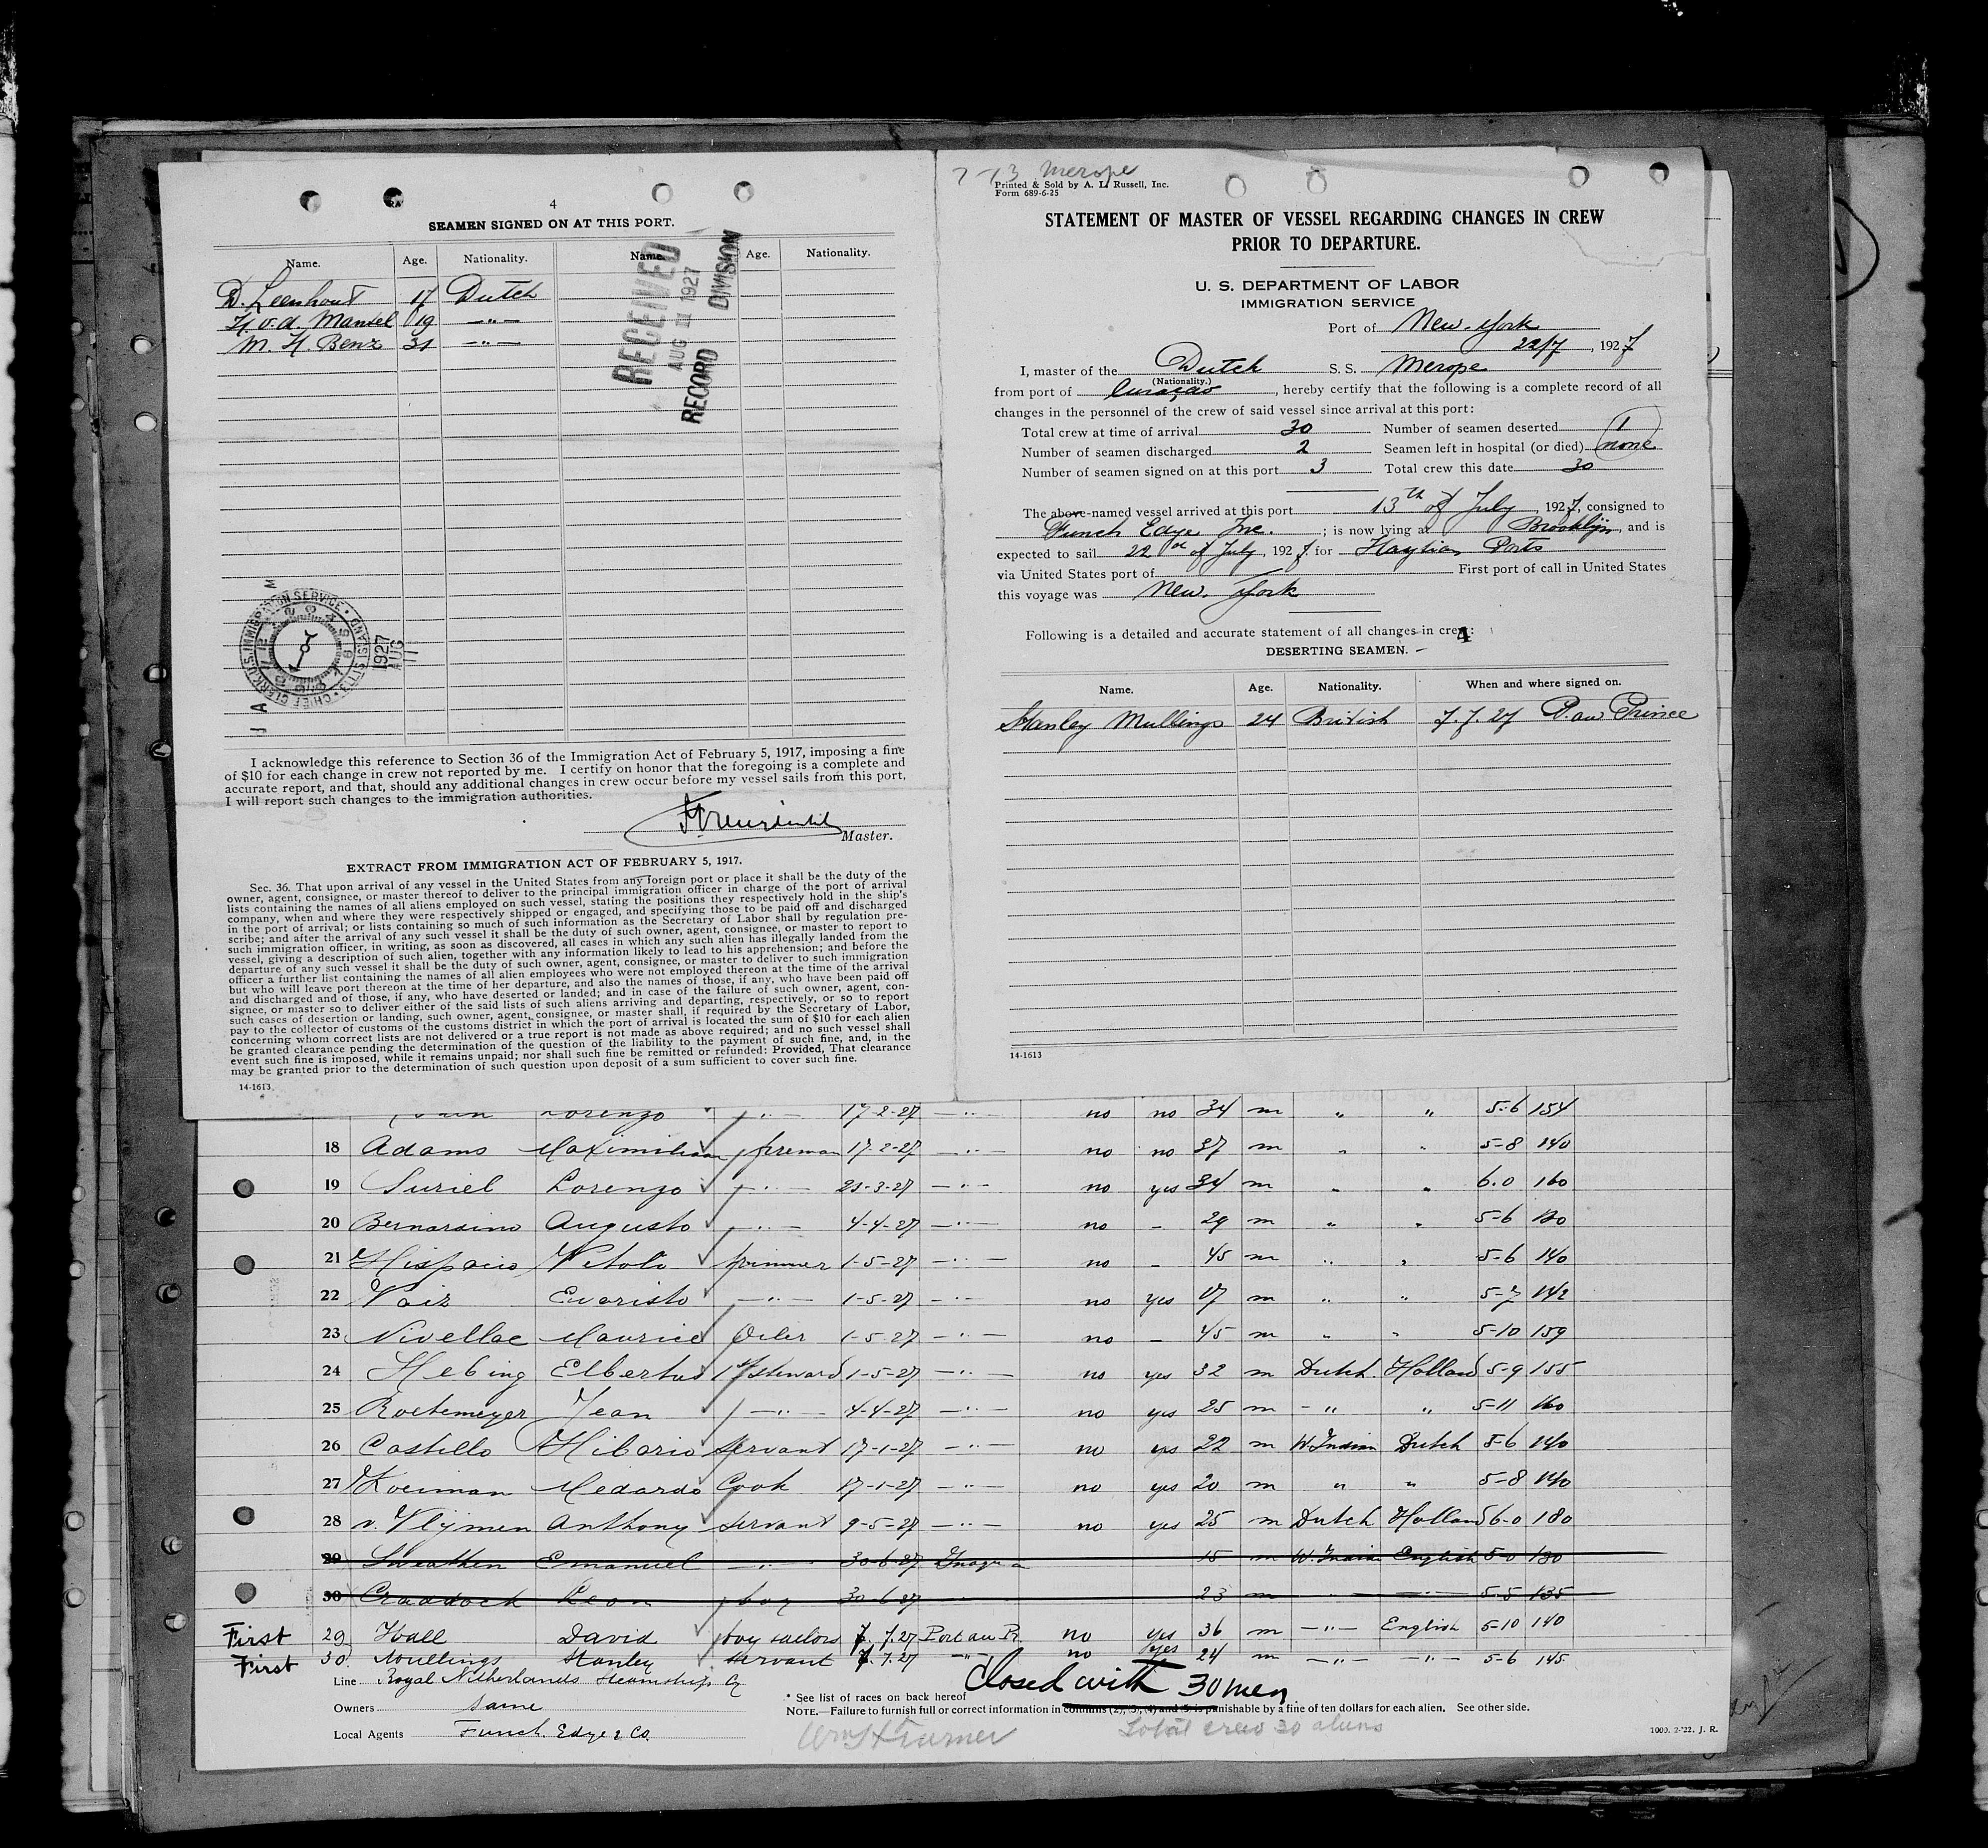 4
SEAMEN SIGNED ON AT THIS PORT.
Name. Age. Nationality. Name. Age. Nationality.
D. Leenhout 17 Dutch
H. v. d. Mansel 19 —"—
M. H. Benz 31 —"—
RECEIVED
AUG 11 1927
RECORD DIVISION
CHIEF CLERK U.S. IMMIGRATION SERVICE · ELLIS ISLAND
1927
AUG
11
I acknowledge this reference to Section 36 of the Immigration Act of February 5, 1917, imposing a fine
of $10 for each change in crew not reported by me. I certify on honor that the foregoing is a complete and
accurate report, and that, should any additional changes in crew occur before my vessel sails from this port,
I will report such changes to the immigration authorities.
Master.
EXTRACT FROM IMMIGRATION ACT OF FEBRUARY 5, 1917.
Sec. 36. That upon arrival of any vessel in the United States from any foreign port or place it shall be the duty of the
owner, agent, consignee, or master thereof to deliver to the principal immigration officer in charge of the port of arrival
lists containing the names of all aliens employed on such vessel, stating the positions they respectively hold in the ship's
company, when and where they were respectively shipped or engaged, and specifying those to be paid off and discharged
in the port of arrival; or lists containing so much of such information as the Secretary of Labor shall by regulation pre-
scribe; and after the arrival of any such vessel it shall be the duty of such owner, agent, consignee, or master to report to
such immigration officer, in writing, as soon as discovered, all cases in which any such alien has illegally landed from the
vessel, giving a description of such alien, together with any information likely to lead to his apprehension; and before the
departure of any such vessel it shall be the duty of such owner, agent, consignee, or master to deliver to such immigration
officer a further list containing the names of all alien employees who were not employed thereon at the time of the arrival
but who will leave port thereon at the time of her departure, and also the names of those, if any, who have been paid off
and discharged and of those, if any, who have deserted or landed; and in case of the failure of such owner, agent, con-
signee, or master so to deliver either of the said lists of such aliens arriving and departing, respectively, or so to report
such cases of desertion or landing, such owner, agent, consignee, or master shall, if required by the Secretary of Labor,
pay to the collector of customs of the customs district in which the port of arrival is located the sum of $10 for each alien
concerning whom correct lists are not delivered or a true report is not made as above required; and no such vessel shall
be granted clearance pending the determination of the question of the liability to the payment of such fine, and, in the
event such fine is imposed, while it remains unpaid; nor shall such fine be remitted or refunded: Provided, That clearance
may be granted prior to the determination of such question upon deposit of a sum sufficient to cover such fine.
14-1613
7-13 Merope
Printed & Sold by A. L. Russell, Inc.
Form 689-6-25
STATEMENT OF MASTER OF VESSEL REGARDING CHANGES IN CREW
PRIOR TO DEPARTURE.
U. S. DEPARTMENT OF LABOR
IMMIGRATION SERVICE
Port of New-York
22/7, 1927
I, master of the Dutch S. S. Merope
(Nationality.)
from port of Curaçao, hereby certify that the following is a complete record of all
changes in the personnel of the crew of said vessel since arrival at this port:
Total crew at time of arrival 30 Number of seamen deserted 1
Number of seamen discharged 2 Seamen left in hospital (or died) none
Number of seamen signed on at this port 3 Total crew this date 30
The above-named vessel arrived at this port 13th of July, 1927, consigned to
Funch Edye Inc.; is now lying at Brooklijn, and is
expected to sail 22 of July, 1927 for Haytian Ports
via United States port of First port of call in United States
this voyage was New. York
Following is a detailed and accurate statement of all changes in crew:
4
DESERTING SEAMEN.
Name. Age. Nationality. When and where signed on.
Stanley Mullings 24 British 7.7.27 P. au Prince
14-1613
Lorenzo —"— 17-2-27 —"— no no 34 m " " 5-6 154
18 Adams Maximiliaan fireman 17-2-27 —"— no no 37 m " " 5-8 140
19 Suriel Lorenzo —"— 21-3-27 —"— no yes 34 m " " 6.0 160
20 Bernardino Augusto —"— 4-4-27 —"— no - 29 m " " 5-6 130
21 Hispacio Vitoli trimmer 1-5-27 —"— no - 45 m " " 5-6 140
22 Evaristo —"— 1-5-27 —"— no yes 17 m " " 5-7 142
23 Nivellac Maurice Oiler 1-5-27 —"— no - 45 m " " 5-10 159
24 Hebing Elbertus steward 1-5-27 —"— no yes 32 m Dutch Holland 5-9 155
25 Roetemeyer Jean —"— 4-4-27 —"— no yes 25 m —"— " 5-11 160
26 Castillo Hilario servant 17-1-27 —"— no yes 22 m W. Indian Dutch 5-6 140
27 Koeiman Medardo Cook 17-1-27 —"— no yes 20 m " " 5-8 140
28 v. Vlijmen Anthony servant 9-5-27 —"— no yes 25 m Dutch Holland 6-0 180
29 Sweathen Emanuel —"— 30-6-27 Inagua 15 m W. Indian English 5-0 130
30 Craddock Leon boy 30-6-27 —"— 23 m —"— —"— 5-5 135
First 29 Hall David boy sailors 7.7.27 Port au Pr. no yes 36 m —"— English 5-10 140
First 30 Mullings Stanley servant 7.7.27 —"— no yes 24 m —"— —"— 5-6 145
Line Royal Netherlands Steamship Cy
Closed with 30 men
* See list of races on back hereof
Owners same
NOTE.—Failure to furnish full or correct information in columns (2), (3), (4) and (5) is punishable by a fine of ten dollars for each alien. See other side.
Local Agents Funch. Edye & Co.
Wm H Turner
Total crew 30 aliens
1000. 2-'22. J. R.